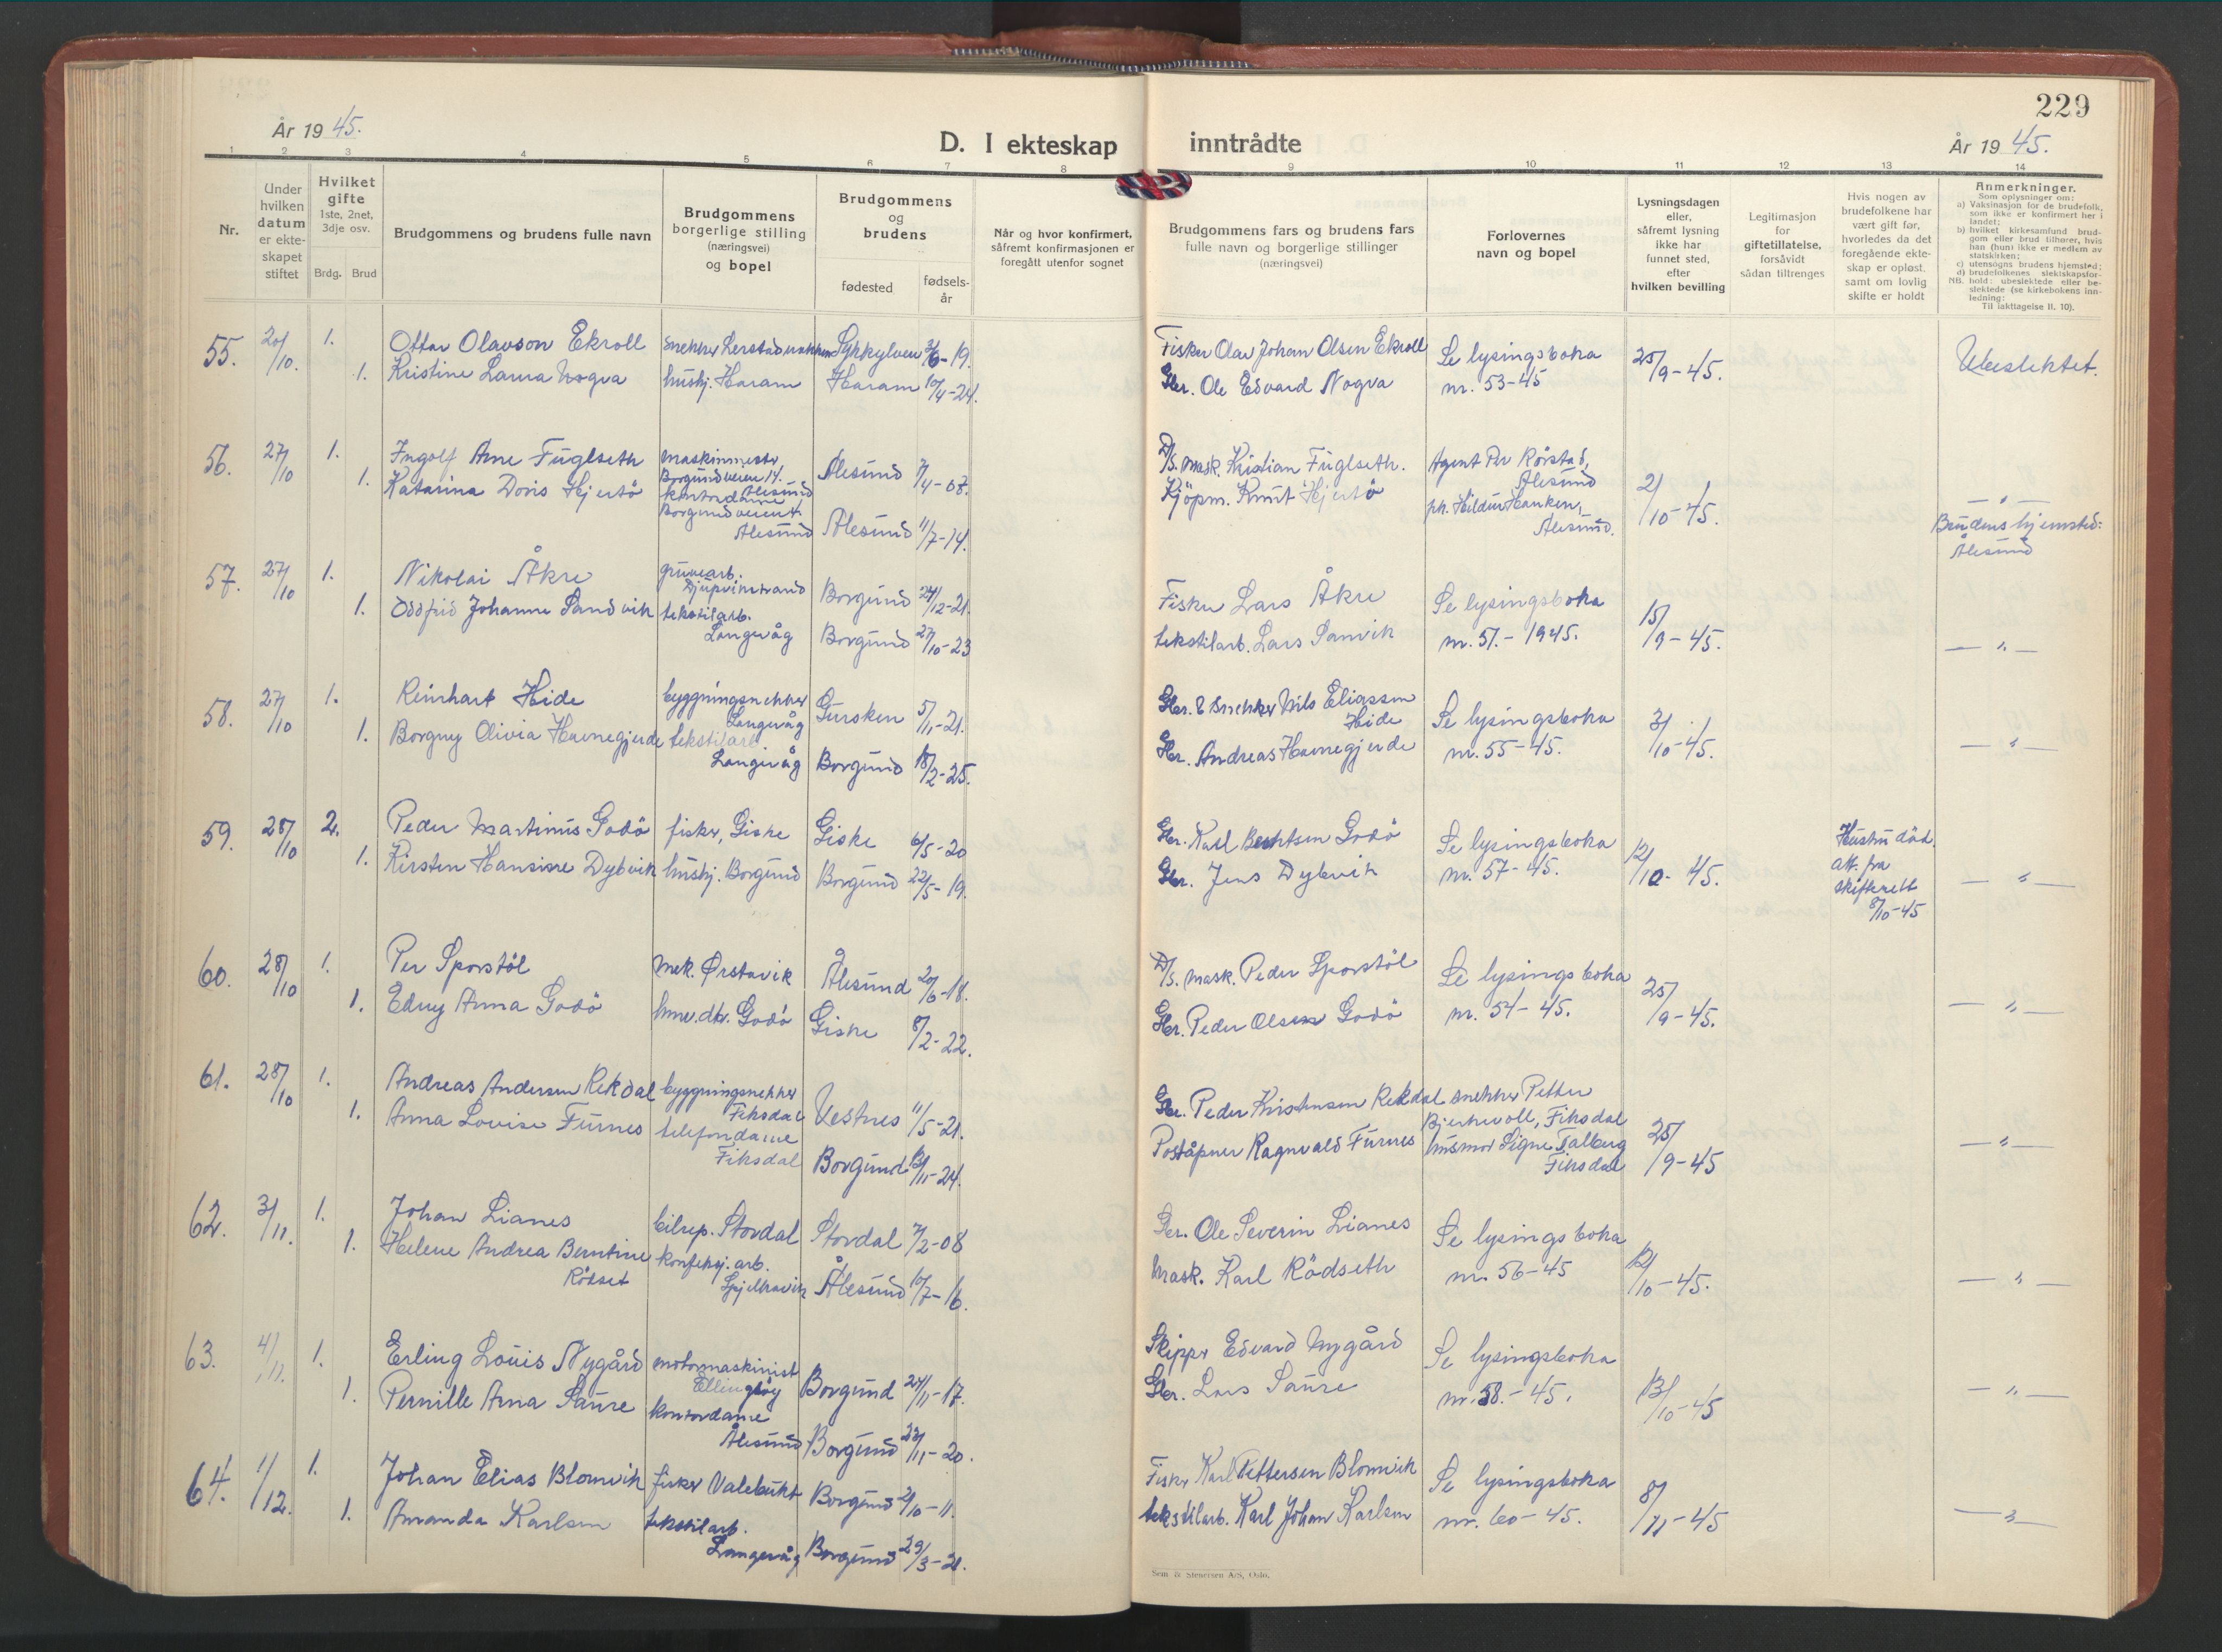 229
År 1945.
D. I ekteskap inntrådte
År 1945.
1 2 3 4 5 6 7 8 9 10 11 12 13 14
Nr.
Under hvilken datum er ekteskapet stiftet
Hvilket gifte 1ste, 2net, 3dje osv.
Brdg. Brud
Brudgommens og brudens fulle navn
Brudgommens borgerlige stilling (næringsvei) og bopel
Brudgommens og brudens
fødested
fødselsår
Når og hvor konfirmert, såfremt konfirmasjonen er foregått utenfor sognet
Brudgommens fars og brudens fars fulle navn og borgerlige stillinger (næringsvei)
Forlovernes navn og bopel
Lysningsdagen eller, såfremt lysning ikke har funnet sted, efter hvilken bevilling
Legitimasjon for giftetillatelse, forsåvidt sådan tiltrenges
Hvis nogen av brudefolkene har vært gift før, hvorledes da det foregående ekteskap er opløst, samt om lovlig skifte er holdt
Anmerkninger.
Som oplysninger om:
a) Vaksinasjon for de brudefolk, som ikke er konfirmert her i landet;
b) hvilket kirkesamfund brudgom eller brud tilhører, hvis han (hun) ikke er medlem av statskirken;
c) utensogns brudens hjemsted;
d) brudefolkenes slektskapsforhold: ubeslektede eller beslektede (se kirkebokens innledning:
NB. Til iakttagelse II. 10).
55. 20/10. 1. Ottar Olavson Ekroll snekker Sykkylven -19. Fisker Olav Johan Olsen Ekroll Se lysingsboka 25/9-45. Ubeslektet.
1. Kristine Laura Nogva hushj. Haram Haram 10/4-24. Gbr. Ole Edvard Nogva nr. 53-45
56. 27/10 1. Ingolf Arne Fuglseth maskinmester Borgundveien 14. Ålesund Ålesund 7/4-07. D/S. mask. Kristian Fuglseth. Agent Per Rørstad, Ålesund 2/10-45. — " —
1. Katarina Doris Hjertö kontordame Borgundveien Ålesund Ålesund 11/7-14. Kjöpm. Knut Hjertö Hildur Hanken, Ålesund. Brudens hjemsted: Ålesund
57. 27/10 1. Nikolai Åkre gruvearb. Borgund 24/12-21. Fisker Lars Åkre Se lysingsboka 15/9-45. — " —
1. Oddfrid Johanne Sandvik tekstilarb. Langevåg Borgund 27/10-23 tekstilarb. Lars Sanvik nr. 51.-1945.
58. 27/10 1. Reinhart Hide byggningsnekker Langevåg Gursken 5/11-21. Gbr. & snekker Nils Eliassen Hide Se lysingsboka 3/10-45. — " —
1. Borgny Olivia Havnegjerde tekstilarb. Langevåg Borgund 18/2-25. Gbr. Andreas Havnegjerde nr. 55-45.
59. 28/10 2. Peder Martinus Godö fisker, Giske Giske 6/5-20 Gbr. Karl Berntsen Godö Se lysingsboka 12/10-45. Hustru död. att. fra skifterett 8/10-45 — " —
1. Kirsten Hansine Dybvik hushj. Borgund Borgund 22/5-19. Gbr. Jens Dybvik nr. 57-45.
60. 28/10 1. Per Sporstöl mek. Ørstavik Ålesund 20/6-18. D/S. mask. Peder Sporstöl Se lysingsboka 25/9-45. — " —
1. Edny Anna Godö hmv.dtr. Godö Giske 8/2-22. Gbr. Peder Olsen Godö nr. 54-45.
61. 28/10 1. Andreas Andersen Rekdal byggningsnekker Fiksdal Vestnes 11/5-21. Gbr. Peder Kristensen Rekdal snekker Petter Bjerkevoll, Fiksdal 25/9-45 — " —
1. Anna Lovise Furnes telefondame Fiksdal Borgund 13/11-24. Poståpner Ragnvald Furnes husmor Signe Talberg Fiksdal
62. 3/11. 1. Johan Lianes bilrep. Stordal Stordal 7/2-08 Gbr. Ole Severin Lianes Se lysingsboka 12/10-45. — " —
1. Helene Andrea Berntine Rödset konfeksj. arb. Spjelkavik Ålesund 10/7-16. Mask. Karl Rödseth nr. 56-45
63. 4/11. 1. Erling Louis Nygård motormaskinist Ellingsöy Borgund 24/11-17. Skipper Edvard Nygård Se lysingsboka 13/10-45 — " —
1. Pernille Arna Saure kontordame Ålesund Borgund 23/11-20. Gbr. Lars Saure nr. 58.-45.
64. 1/12. 1. Johan Elias Blomvik fisker Valebukt Borgund 2/10-11. Fisker Karl Pettersen Blomvik Se lysingsboka 8/11-45 — " —
1. Amanda Karlsen tekstilarb. Langevåg Borgund 29/3-21. tekstilarb. Karl Johan Karlsen nr. 60-45.
Sem & Stenersen A/S, Oslo.